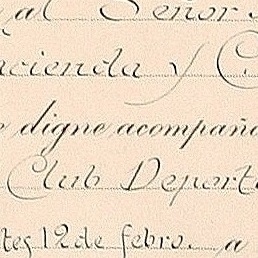 al Señor
cienda y C
digne acompaña
Club Deport
tes 12 de febro. a